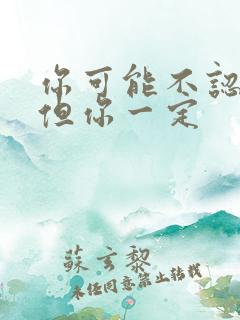 你可能不認
但你一定
蘇玄黎
未任同意禁止轉載